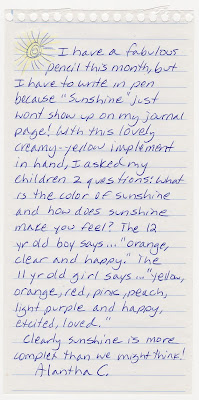 I have a fabulous
pencil this month, but
I have to write in pen
because "Sunshine" just
wont show up on my journal
page! With this lovely
creamy-yellow implement
in hand, I asked my
children 2 questions: What
is the color of sunshine
and how does sunshine
make you feel? The 12
yr old boy says... "orange,
clear and happy." The
11 yr old girl says... "yellow,
orange, red, pink, peach,
light purple and happy,
excited, loved."
Clearly sunshine is more
complex than we might think!
Alantha C.